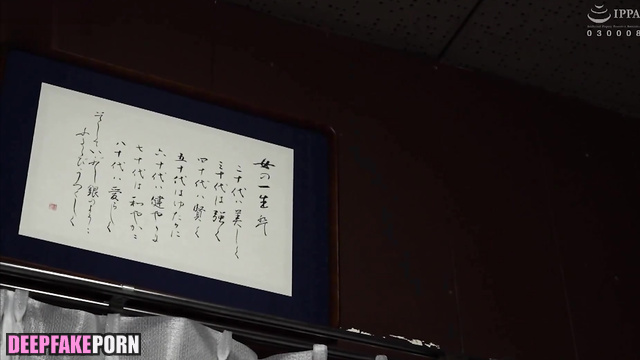 女の一生
二十代は美しく
三十代は強く
四十代は賢く
五十代はゆたかに
六十代は健やかに
七十代は和やかに
八十代は愛らしく
そしていぶし銀のように
うつくしく
IPPA
030008
DEEPFAKEPORN